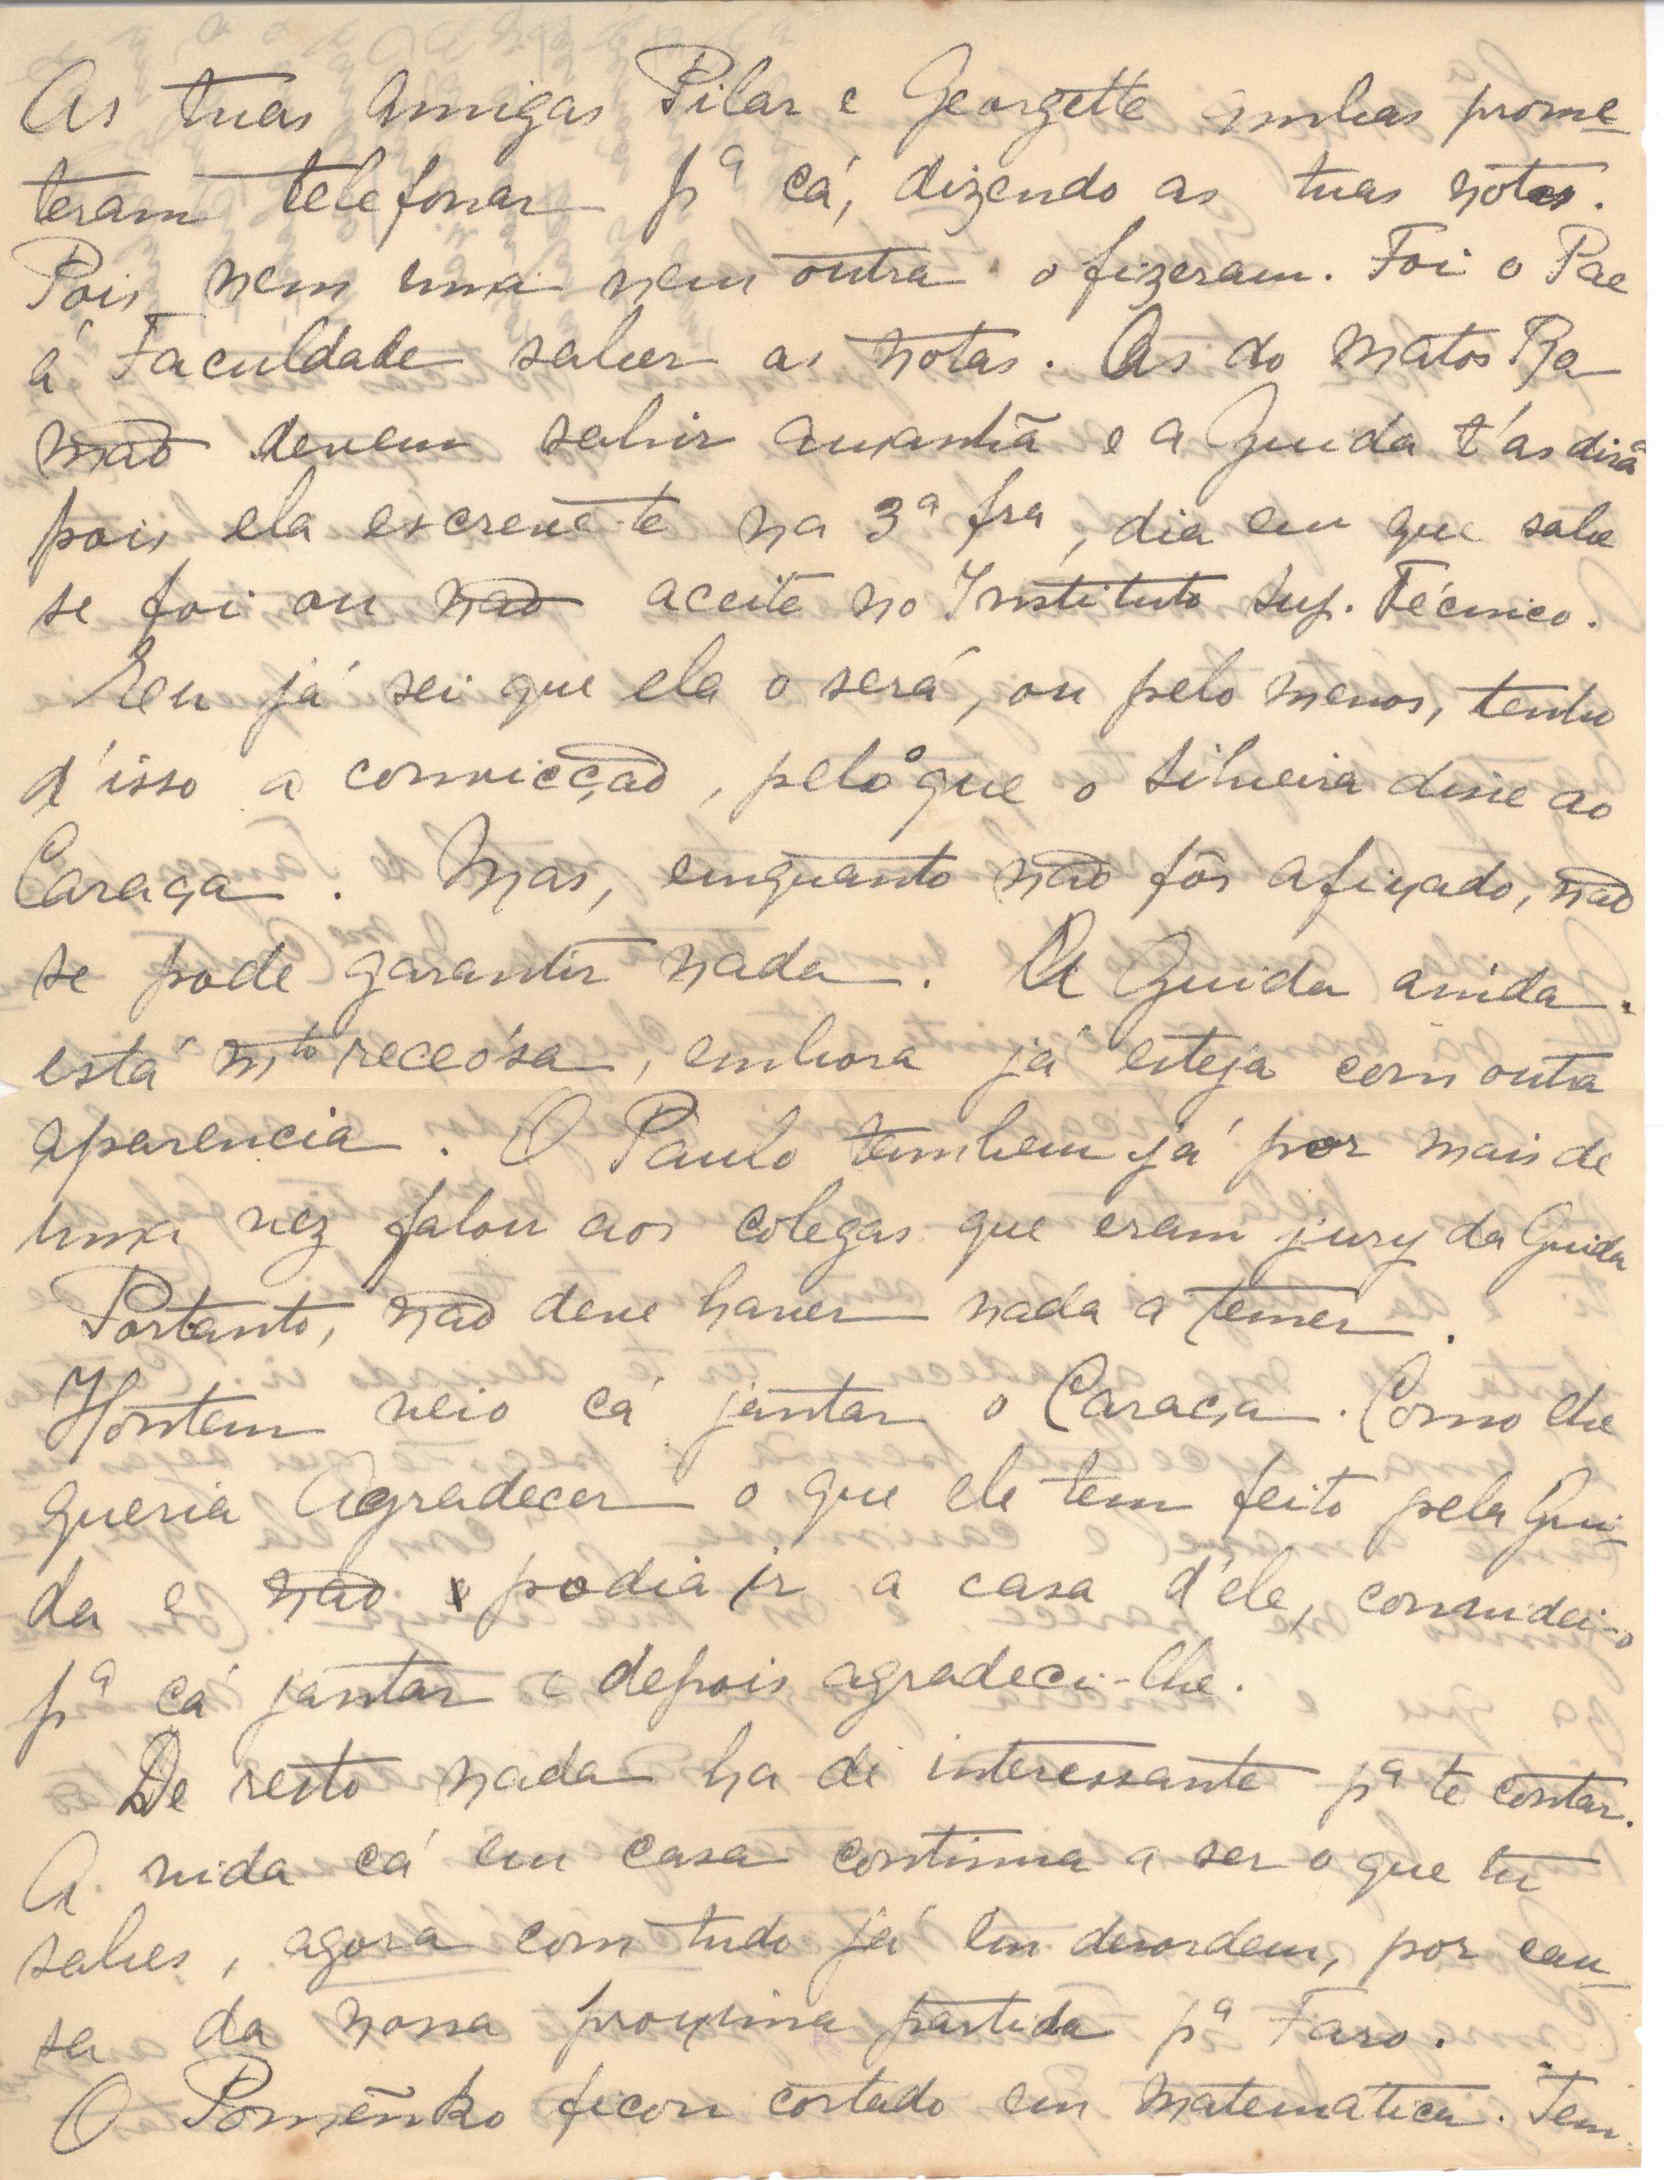 As tuas amigas Pilar e Georgette ambas prome-
teram telefonar pª cá, dizendo as tuas notas.
Pois nem uma nem outra o fizeram. Foi o Pae
á Faculdade saber as notas. As do Matos Ro
mão devem sahir amanhã e a Guida t'as dirá
pois ela escreve-te na 3ª fra, dia em que sabe
se foi ou não aceite no Instituto Sup. Técnico.
Eeu já sei que ela o será, ou pelo menos, tenho
d'isso a convicção, pelo que o Silveira disse ao
Caraça. Mas, emquanto não fôr afixado, não
se pode garantir nada. A Guida ainda
está mto receósa, embora já esteja com outra
aparencia. O Paulo tambem já por mais de
uma vez falou aos colegas que eram jury da Guida
Portanto, não deve haver nada a temer.
Hontem veio cá jantar o Caraça. Como lhe
queria agradecer o que ele tem feito pela Gui-
da e não podia ir a casa d'ele, convidei-o
pª cá jantar e depois agradeci-lhe.
De resto nada ha de interessante pª te contar.
A vida cá em casa continua a ser o que tu
sabes, agora com tudo já em desordem, por cau-
sa da nossa proxima partida pª Faro.
O Pomênko ficou cortado em Matemática. Tem